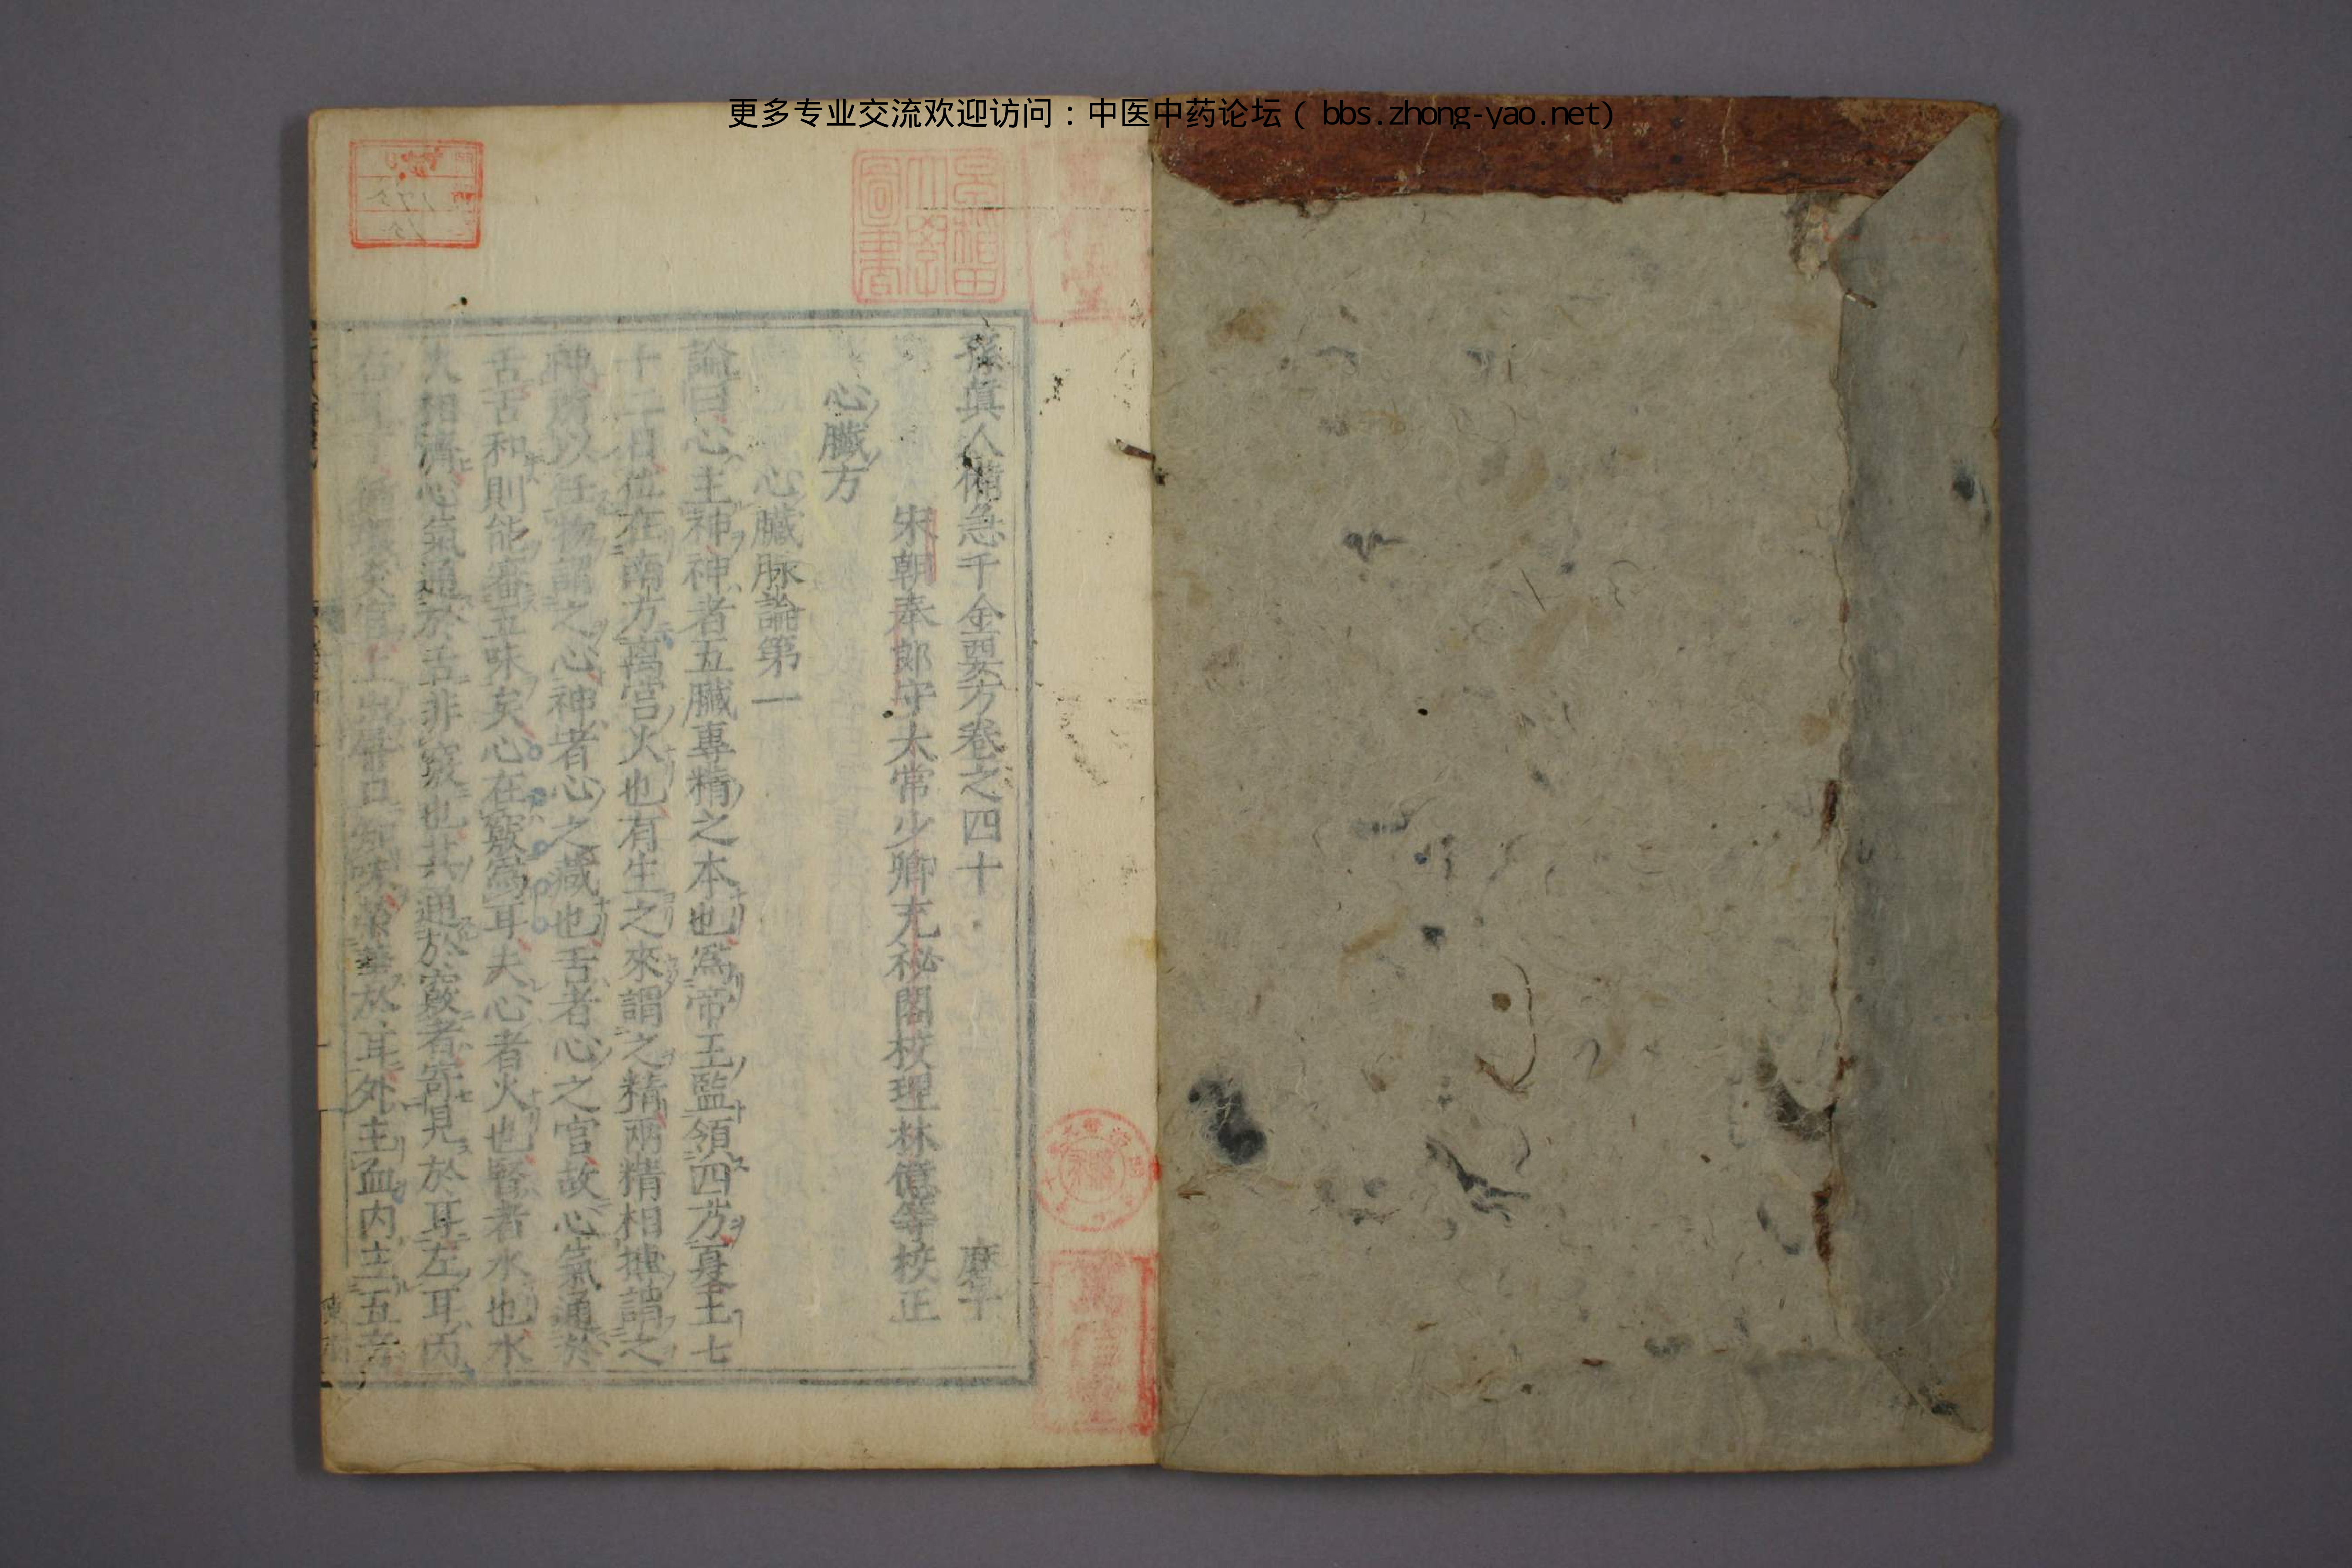 更多专业交流欢迎访问：中医中药论坛（bbs.zhong-yao.net）
孫眞人備急千金要方卷之四十 麽下
宋朝奉郎守太常少卿充祕閣校理林億等校正
心臟方
心臟脉論第一
論曰心主神神者五臟專精之本也爲帝王監領四方夏王七
十二日位在南方離宮火也有生之來謂之精兩精相摶謂之
神所以任物謂之心神者心之藏也舌者心之官故心氣通於
舌舌和則能審五味矣心在竅爲耳夫心者火也腎者水也水
火相濟心氣通於舌非竅也其通於竅者寄見於耳左耳丙
右耳丁循環炎宮上出唇口知味榮華於耳外主血內主五音
早稲田大學圖書
萬信堂